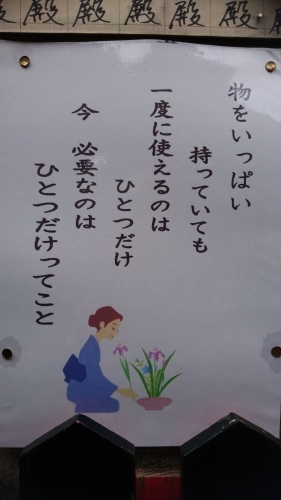 殿 殿 殿 殿 殿
物をいっぱい
持っていても
一度に使えるのは
ひとつだけ
今 必要なのは
ひとつだけってこと